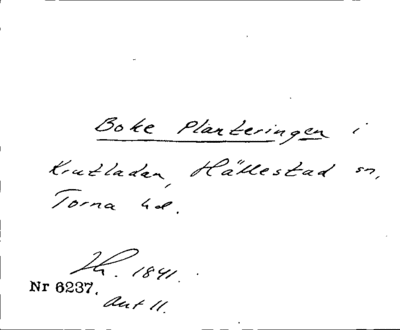 Boke Planteringen i
Krutladan, Hällestad sn,
Torna hd.
Th. 1841.
Nr 6237.
Aut 11.